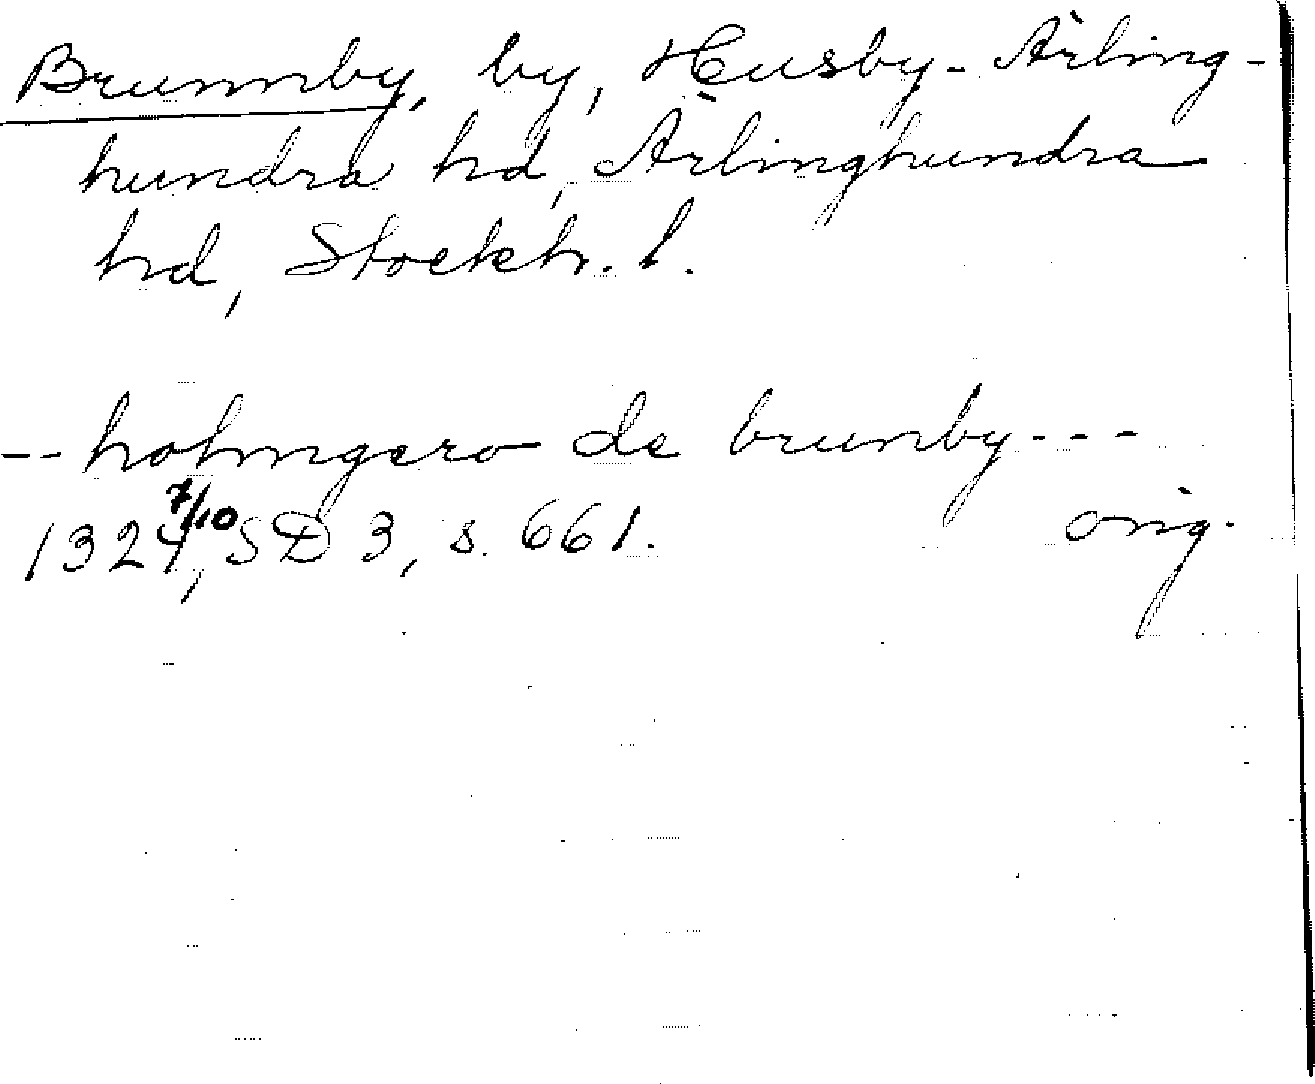 Brunnby, by, Husby-Ärling-
hundra hd, Ärlinghundra
hd, Stockh. l.
-- holmgero de brunby ---
1324 7/10, SD 3, s. 661. orig.